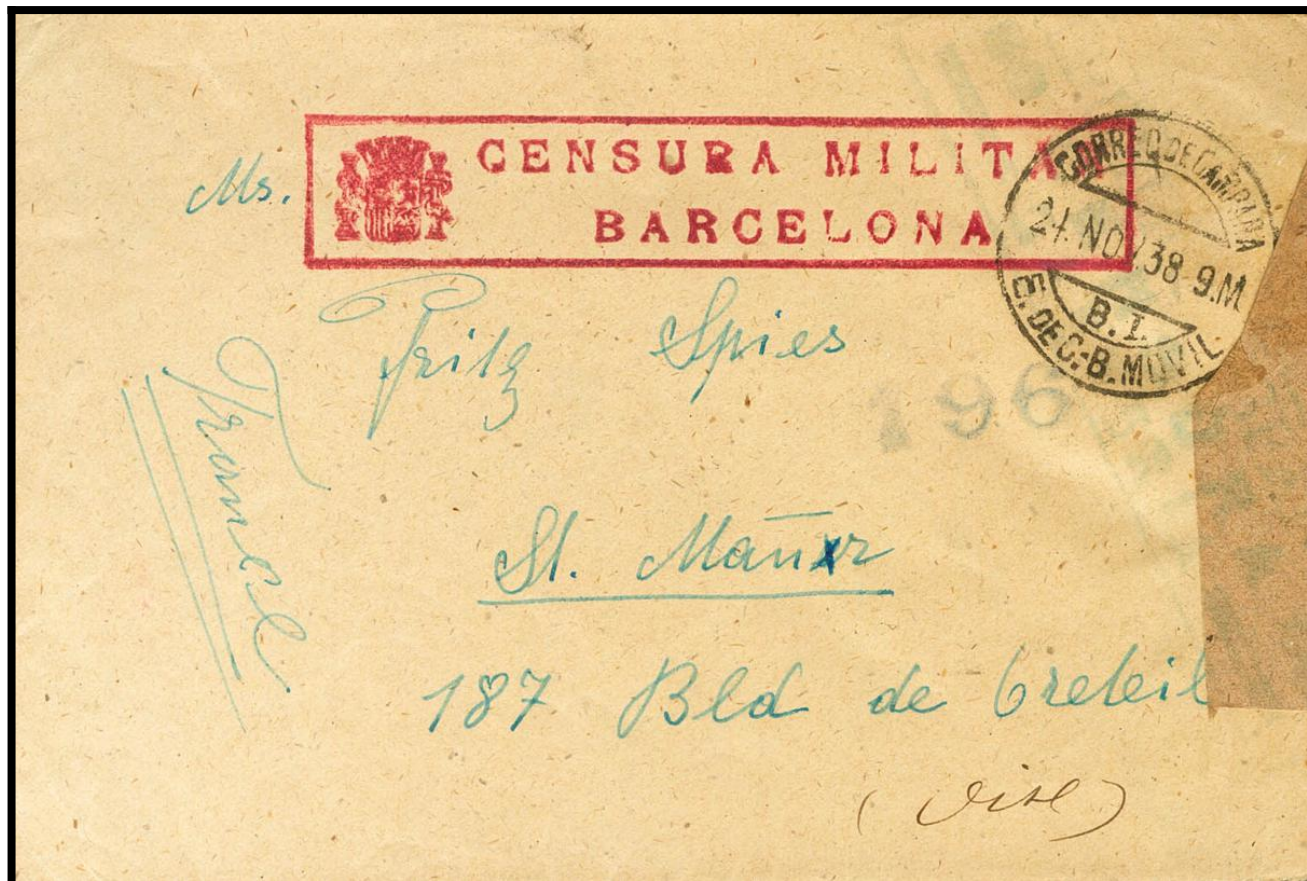 CENSURA MILITAR
BARCELONA
CORREO DE CAMPAÑA
24 NOV 38 9.M
B. I.
E. DE C.-B. MOVIL
Ms.
Fritz Spies
St. Maur
187 Bld de Creteil
France
196